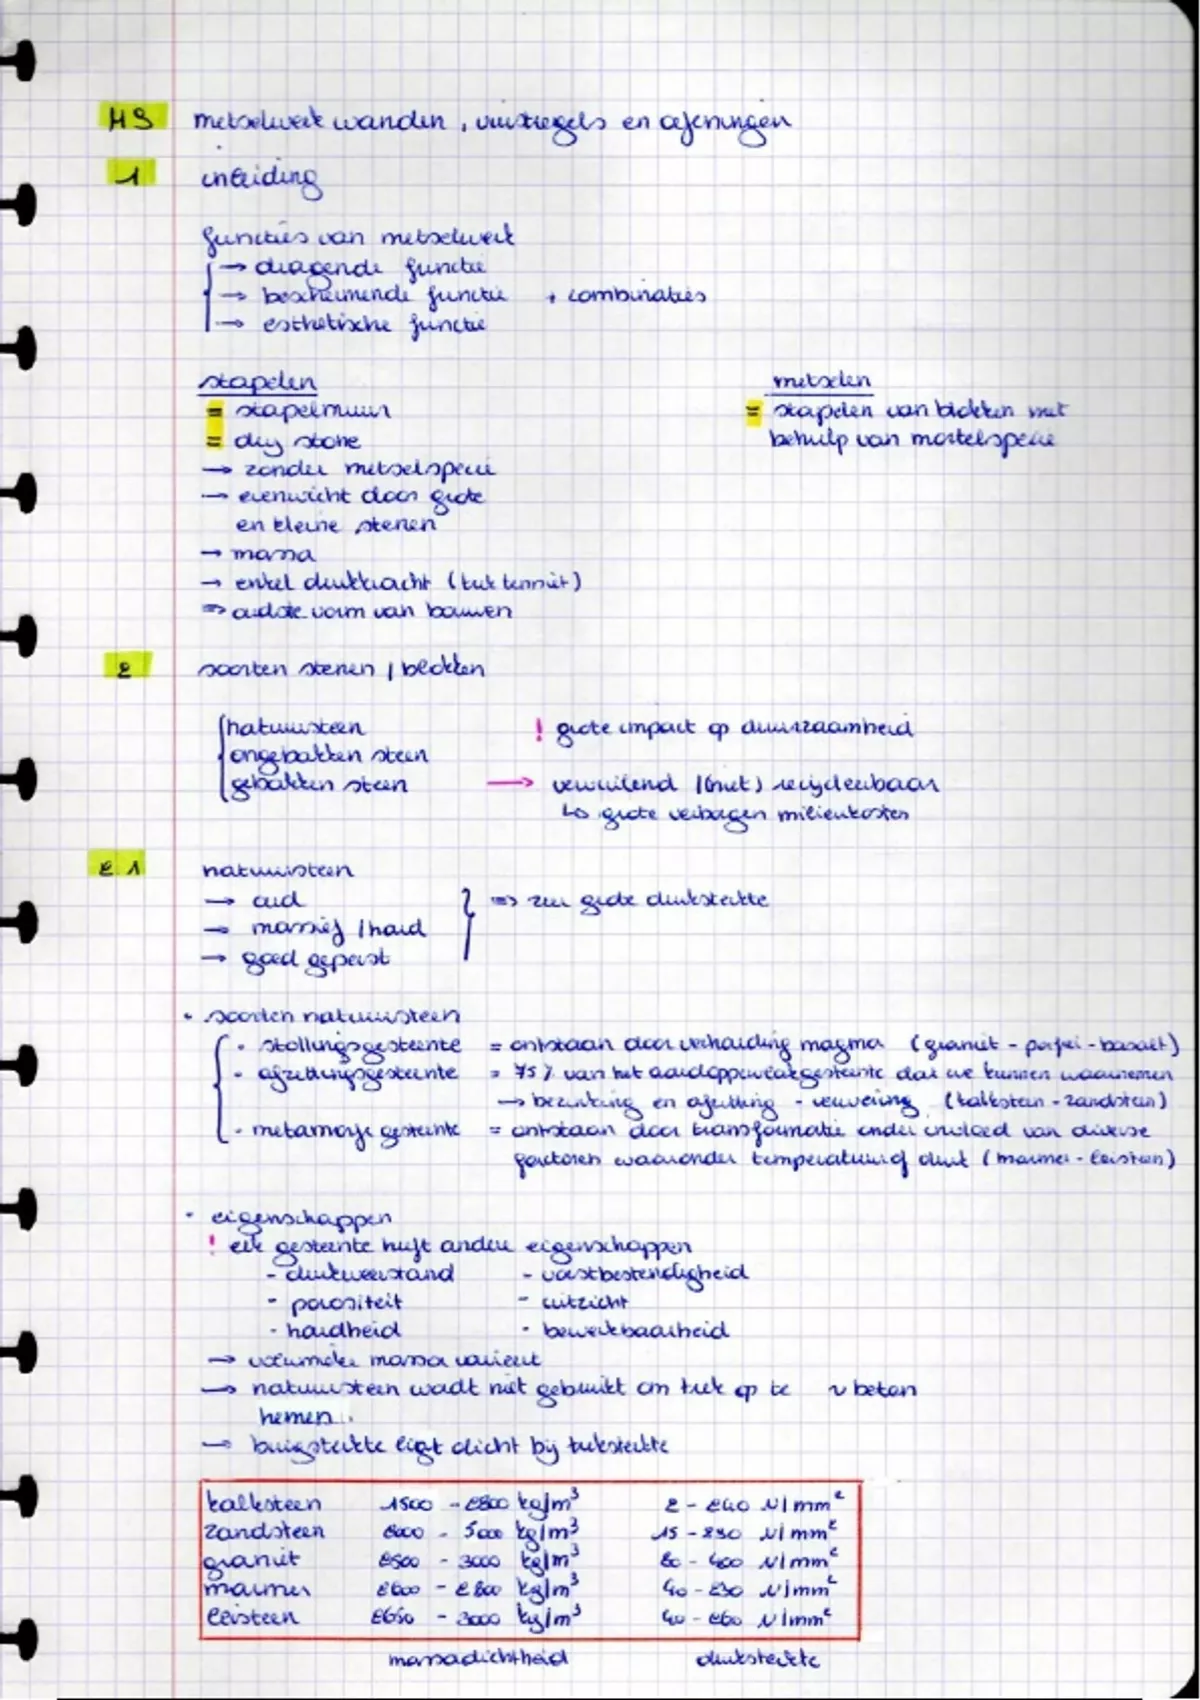 H3 metselwerk wanden, vuistregels en oefeningen
1 inleiding
functies van metselwerk
→ dragende functie
→ beschermende functie + combinaties
→ esthetische functie
stapelen metselen
= stapelmuur = stapelen van blokken met
= dry stone behulp van mortelspecie
→ zonder metselspecie
→ evenwicht door grote
en kleine stenen
→ massa
→ enkel drukkracht (trek tenniet)
⇒ oudste vorm van bouwen
2 soorten stenen / blokken
natuursteen ! grote impact op duurzaamheid
ongebakken steen
gebakken steen → vervuilend / (niet) recycleerbaar
↳ grote verborgen milieukosten
2.1 natuursteen
→ oud ⇒ zeer grote druksterkte
→ massief / hard
→ goed geperst
• soorten natuursteen
• stollingsgesteente = ontstaan door verharding magma (graniet - porfier - basalt)
• afzettingsgesteente = 75% van het aardoppervlakgesteente dat we kunnen waarnemen
→ bezinking en afzetting - verwering (kalksteen - zandsteen)
• metamorfe gesteente = ontstaan door transformatie onder invloed van diverse
factoren waaronder temperatuur of druk (marmer - leisteen)
• eigenschappen
! elk gesteente heeft andere eigenschappen
- drukweerstand - vorstbestendigheid
- porositeit - uitzicht
- hardheid - bewerkbaarheid
→ volumieke massa varieert
→ natuursteen wordt niet gebruikt om trek op te ~ beton
nemen.
→ buigsterkte ligt dicht bij treksterkte
kalksteen 1500 - 2800 kg/m³ 2 - 240 N/mm²
zandsteen 2000 - 3000 kg/m³ 15 - 290 N/mm²
graniet 2500 - 3000 kg/m³ 80 - 400 N/mm²
marmer 2600 - 2800 kg/m³ 40 - 230 N/mm²
leisteen 2650 - 3000 kg/m³ 40 - 260 N/mm²
massadichtheid druksterkte